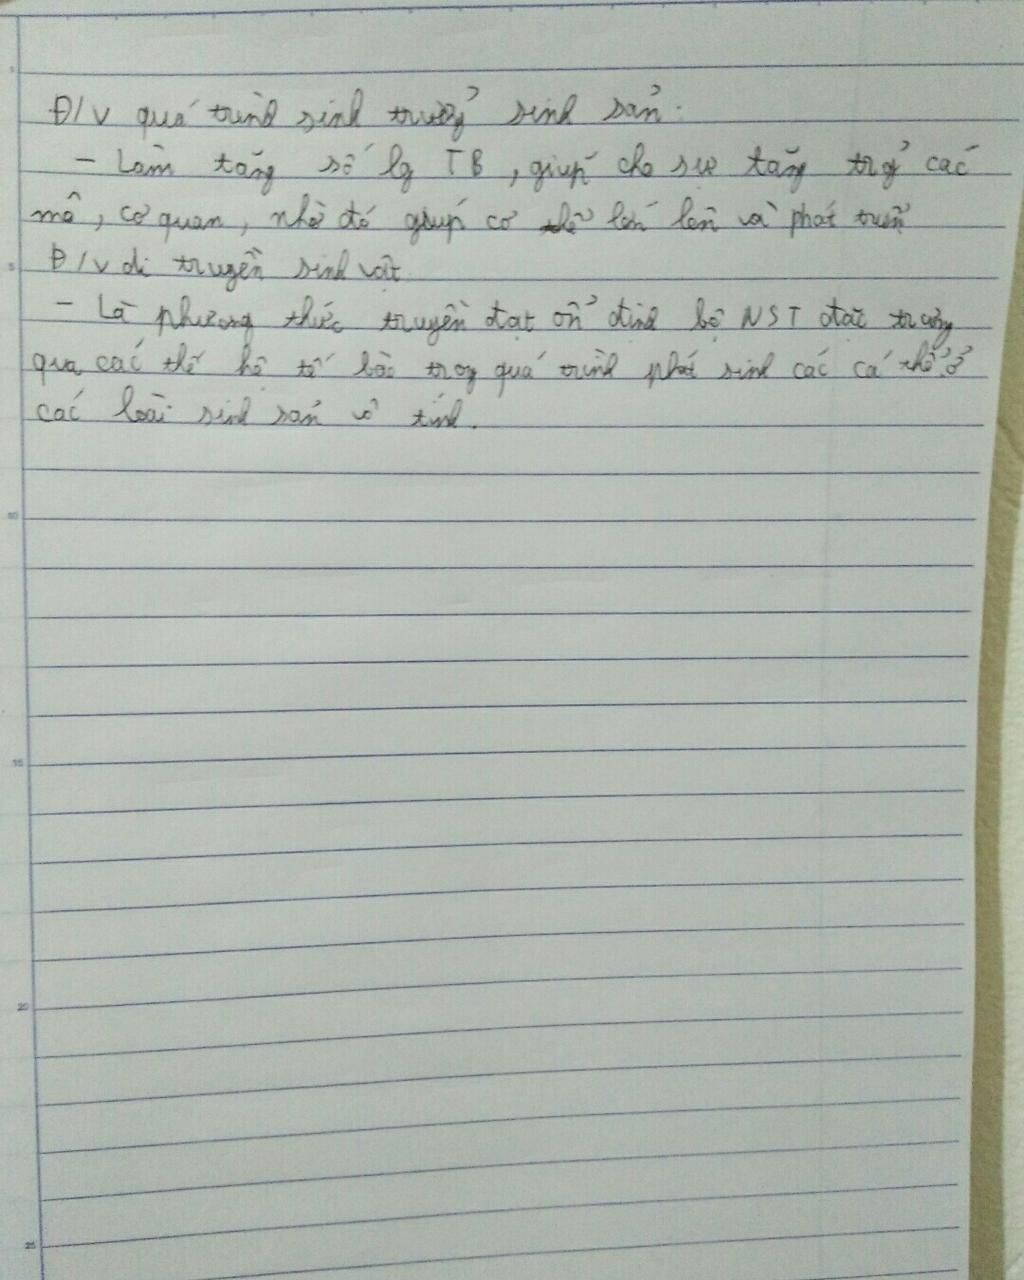 Đ/v quá trình sinh trưởng sinh sản:
- Làm tăng số lg TB, giúp cho sự tăng trg các
mô, cơ quan, nhờ đó giúp cơ thể lớn lên và phát triển
Đ/v di truyền sinh vật
- Là phương thức truyền đạt ổn định bộ NST đặc trưng
qua các thế hệ tế bào trog quá trình phát sinh các cá thể ở
các loài sinh sản vô tính.
5
5
10
15
20
25